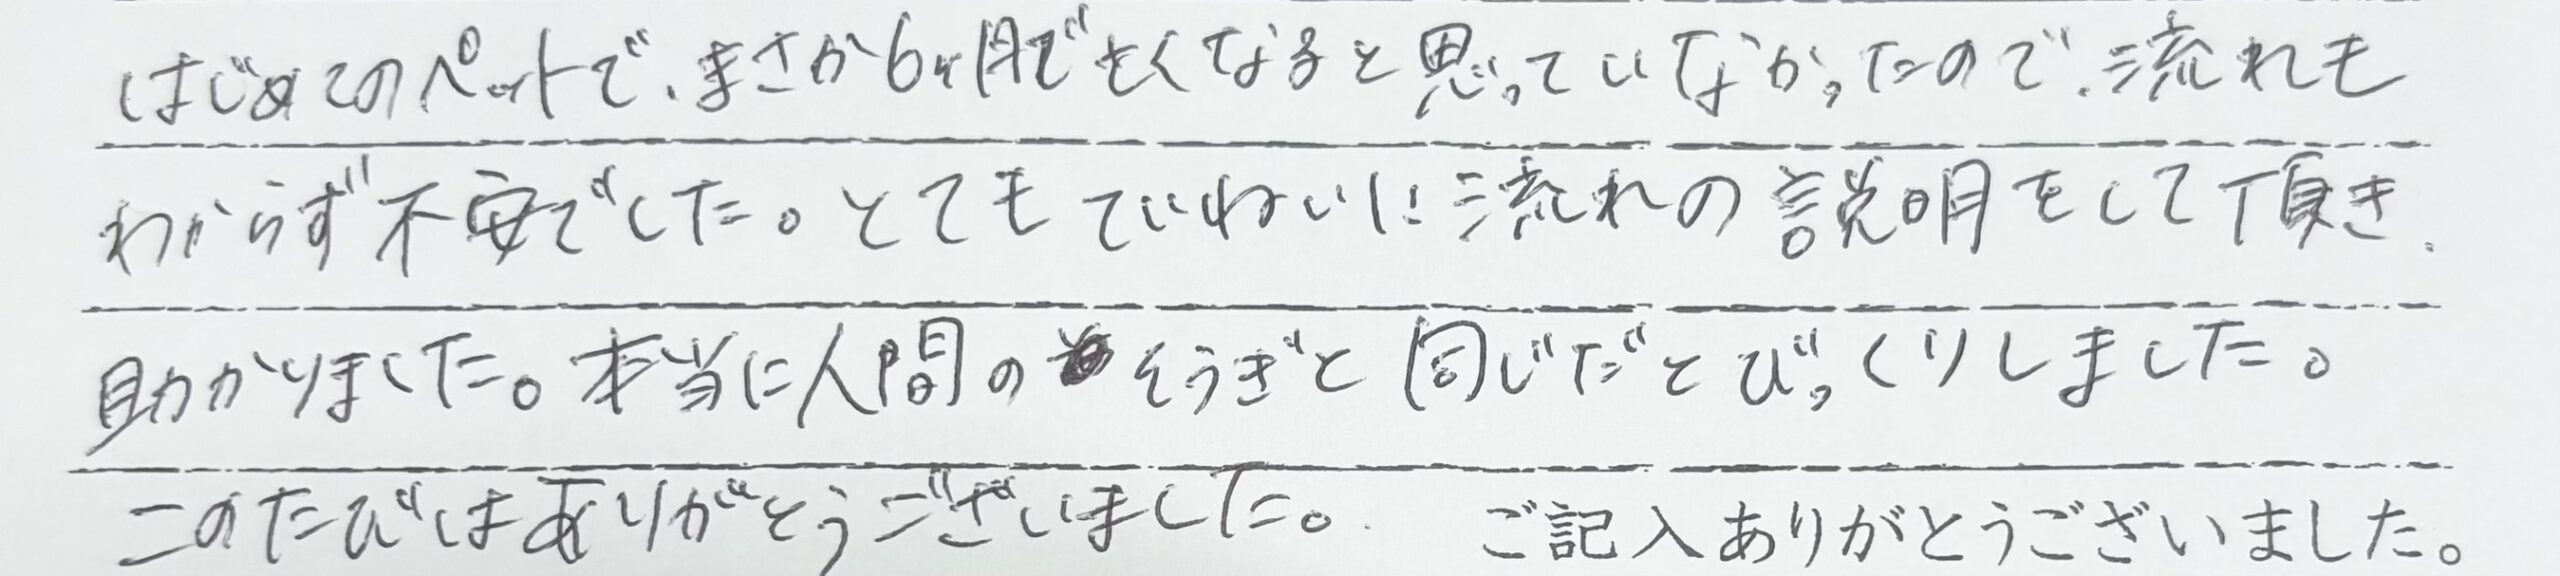 はじめてのペットで、まさか6ヶ月で亡くなると思っていなかったので、流れも
わからず不安でした。とてもていねいに流れの説明をして頂き、
助かりました。本当に人間のそうぎと同じだとびっくりしました。
このたびはありがとうございました。 ご記入ありがとうございました。